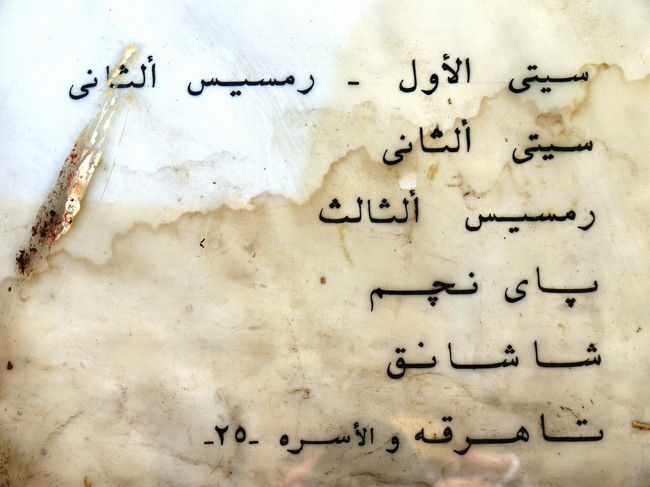 سيتى الأول - رمسيس ألثانى
سيتى ألثانى
رمسيس ألثالث
پاى نچم
شاشانق
تاهرقه و الأسره -٢٥-